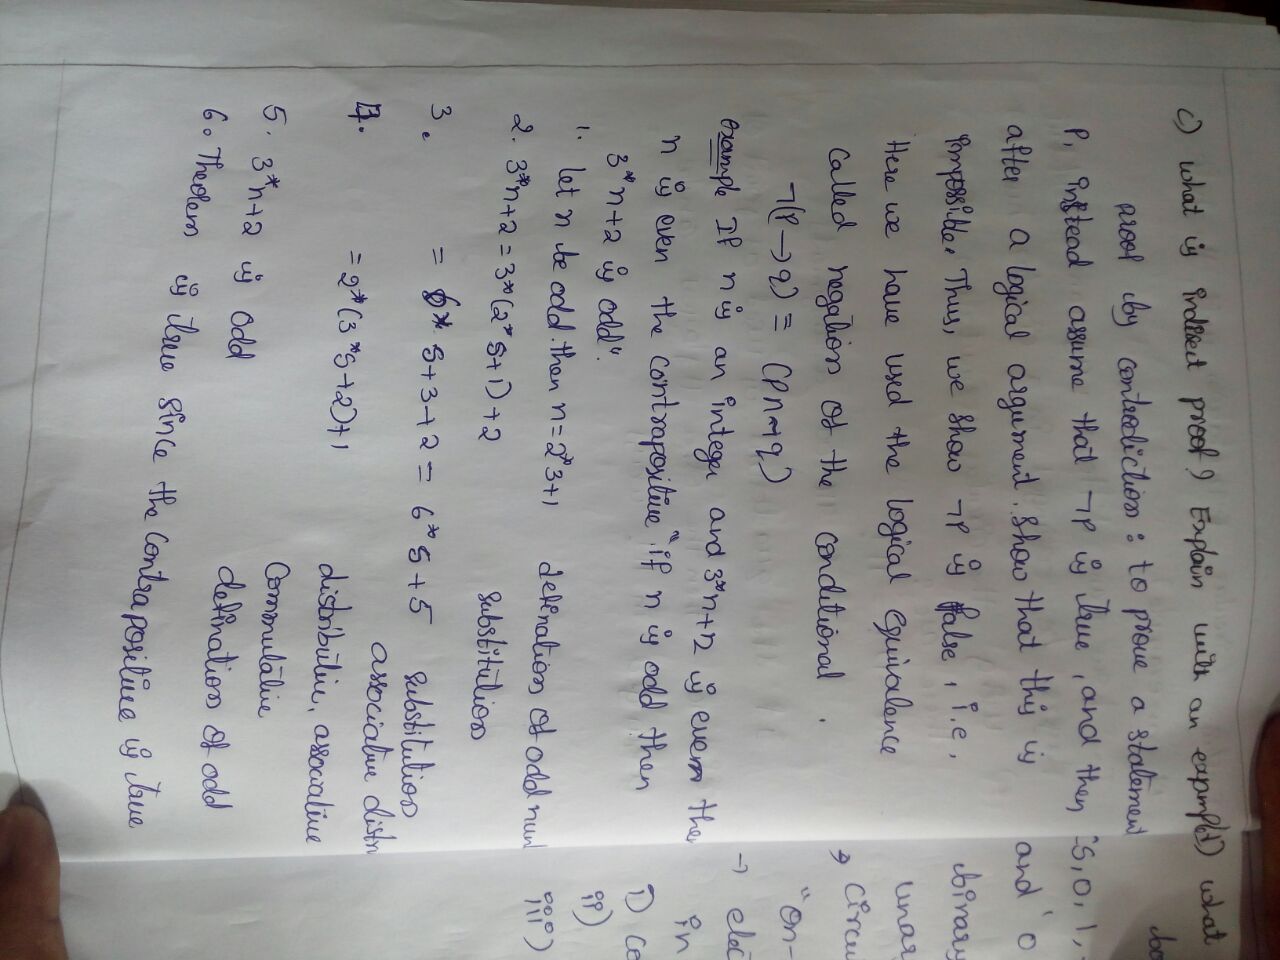 c) what is indirect proof? Explain with an example(t)
proof by contradiction : to prove a statement
P, instead assume that ¬P is true, and then
after a logical argument. show that this is
impossible. Thus, we show ¬P is false, i.e,
Here we have used the logical equivalence
called negation of the conditional.
¬(P→q) = (P∩~q)
example If n is an integer and 3*n+2 is even then
n is even the contrapositive "if n is odd then
3*n+2 is odd".
1. let n be odd. then n=2*3+1 defination of odd num
2. 3*n+2 = 3*(2*s+1)+2 substitution
3. = 6*s+3+2 = 6*s+5 substitution
associative distri
4. = 2*(3*s+2)+1 distributive, associative
Commutative
5. 3*n+2 is odd defination of odd
6. Theorem is true since the contrapositive is true
1) what
-5, 0, 1,
and '0
binary
unar
→ circu
"on-
→ elec
in
i) co
ii)
iii)